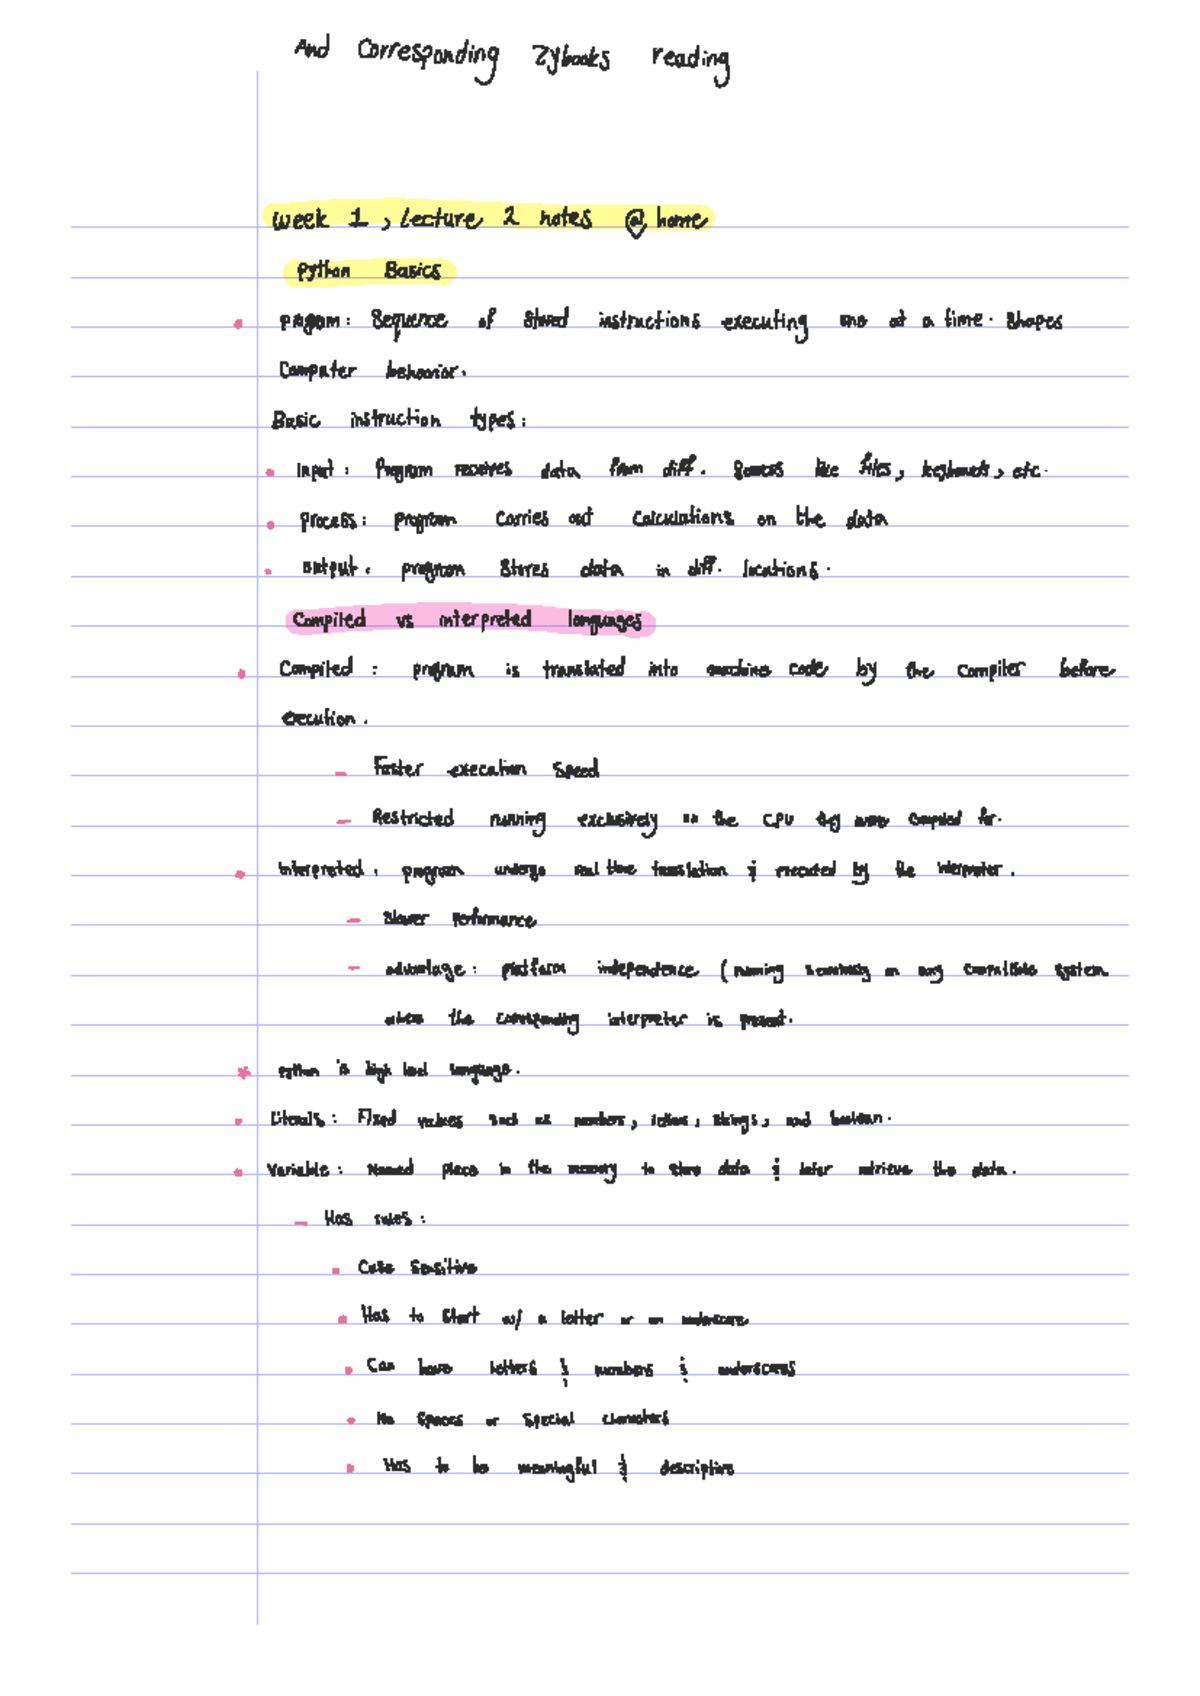 And Corresponding Zybooks reading
Week 1, Lecture 2 notes @ home
Python Basics
• program: Sequence of stored instructions executing one at a time. Shapes
Computer behavior.
Basic instruction types:
• Input: Program receives data from diff. Sources like files, keyboards, etc.
• Process: program carries out calculations on the data
• output: program stores data in diff. locations.
Compiled vs interpreted languages
• Compiled: program is translated into machine code by the compiler before
execution.
– Faster execution speed
– Restricted running exclusively on the CPU they were compiled for.
• Interpreted: program undergo real time translation & executed by the interpreter.
– Slower Performance
– advantage: platform independence (running seamlessly on any compatible system
where the corresponding interpreter is present.
* python is high level language.
• Literals: Fixed values such as numbers, strings, and boolean.
• Variable: Named place in the memory to store data & later retrieve the data.
– Has rules:
• Case Sensitive
• Has to start w/ a letter or an underscore
• Can have letters & numbers & underscores
• No spaces or special characters
• Has to be meaningful & descriptive